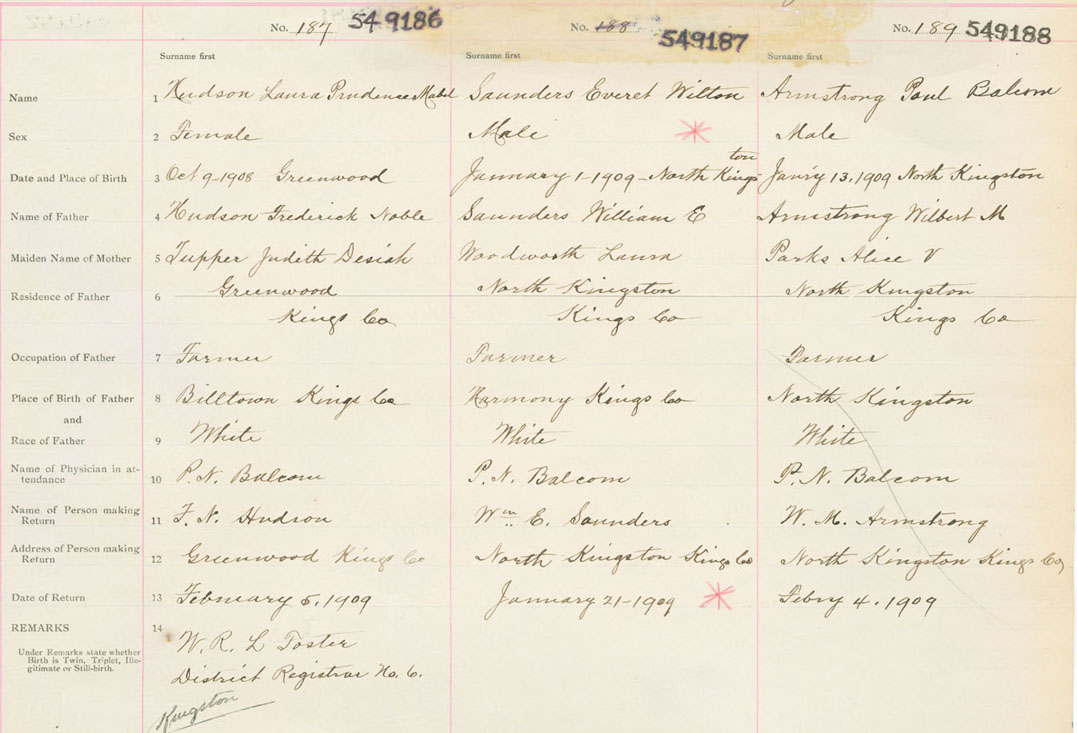 No. 187 549186 No. 188 549187 No. 189 549188
Surname first Surname first Surname first
Name 1 Hudson Laura Prudence Mabel Saunders Everet Wilton Armstrong Paul Balcom
Sex 2 Female Male Male
Date and Place of Birth 3 Oct 9-1908 Greenwood January 1-1909-North Kingston Janry 13, 1909 North Kingston
Name of Father 4 Hudson Frederick Noble Saunders William E Armstrong Wilbert M
Maiden Name of Mother 5 Tupper Judith Desiah Woodworth Laura Parks Alice V
Residence of Father 6 Greenwood North Kingston North Kingston
Kings Co Kings Co Kings Co
Occupation of Father 7 Farmer Farmer Farmer
Place of Birth of Father 8 Billtown Kings Co Harmony Kings Co North Kingston
and
Race of Father 9 White White White
Name of Physician in at-
tendance 10 P. N. Balcom P. N. Balcom P. N. Balcom
Name of Person making
Return 11 F. N. Hudson Wm. E. Saunders W. M. Armstrong
Address of Person making
Return 12 Greenwood Kings Co North Kingston Kings Co North Kingston Kings Co,
Date of Return 13 February 5, 1909 January 21-1909 Febry 4. 1909
REMARKS 14
Under Remarks state whether
Birth is Twin, Triplet, Ille-
gitimate or Still-birth.
W. R. L Foster
District Registrar No. 6.
Kingston